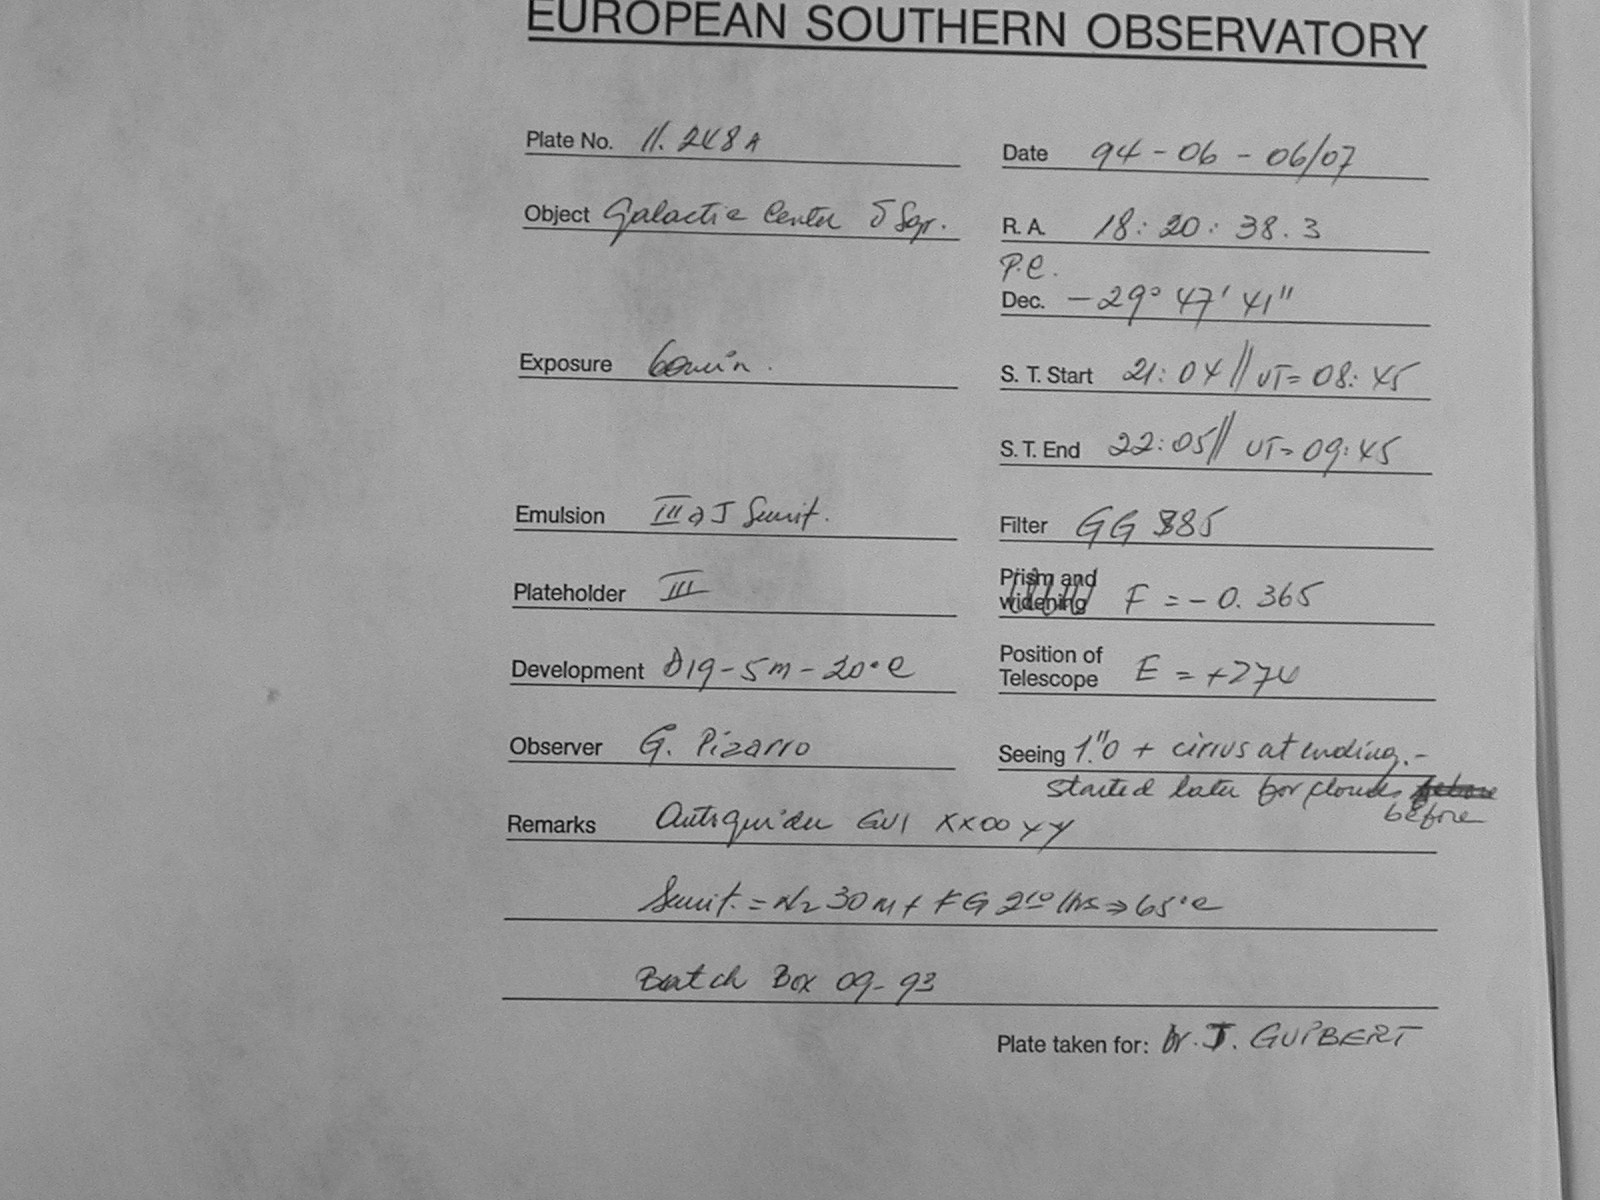 EUROPEAN SOUTHERN OBSERVATORY
Plate No. 11.248A
Date 94-06-06/07
Object Galactic Center δ Sgr.
R. A. 18:20:38.3
P.C.
Dec. -29° 47' 41"
Exposure 60min.
S. T. Start 21:04 // UT= 08:45
S. T. End 22:05 // UT= 09:45
Emulsion IIIaJ Sensit.
Filter GG 385
Plateholder III
Prism and widening F = -0.365
Development D19-5m-20°C
Position of Telescope E = +274
Observer G. Pizarro
Seeing 1."0 + cirrus at ending.-
started later for clouds
before
Remarks Autoguider GV1 XX00YY
Sensit. = N2 30m + FG 2h10 hrs ⇒ 65°C
Batch Box 09-93
Plate taken for: Dr. J. GUIBERT